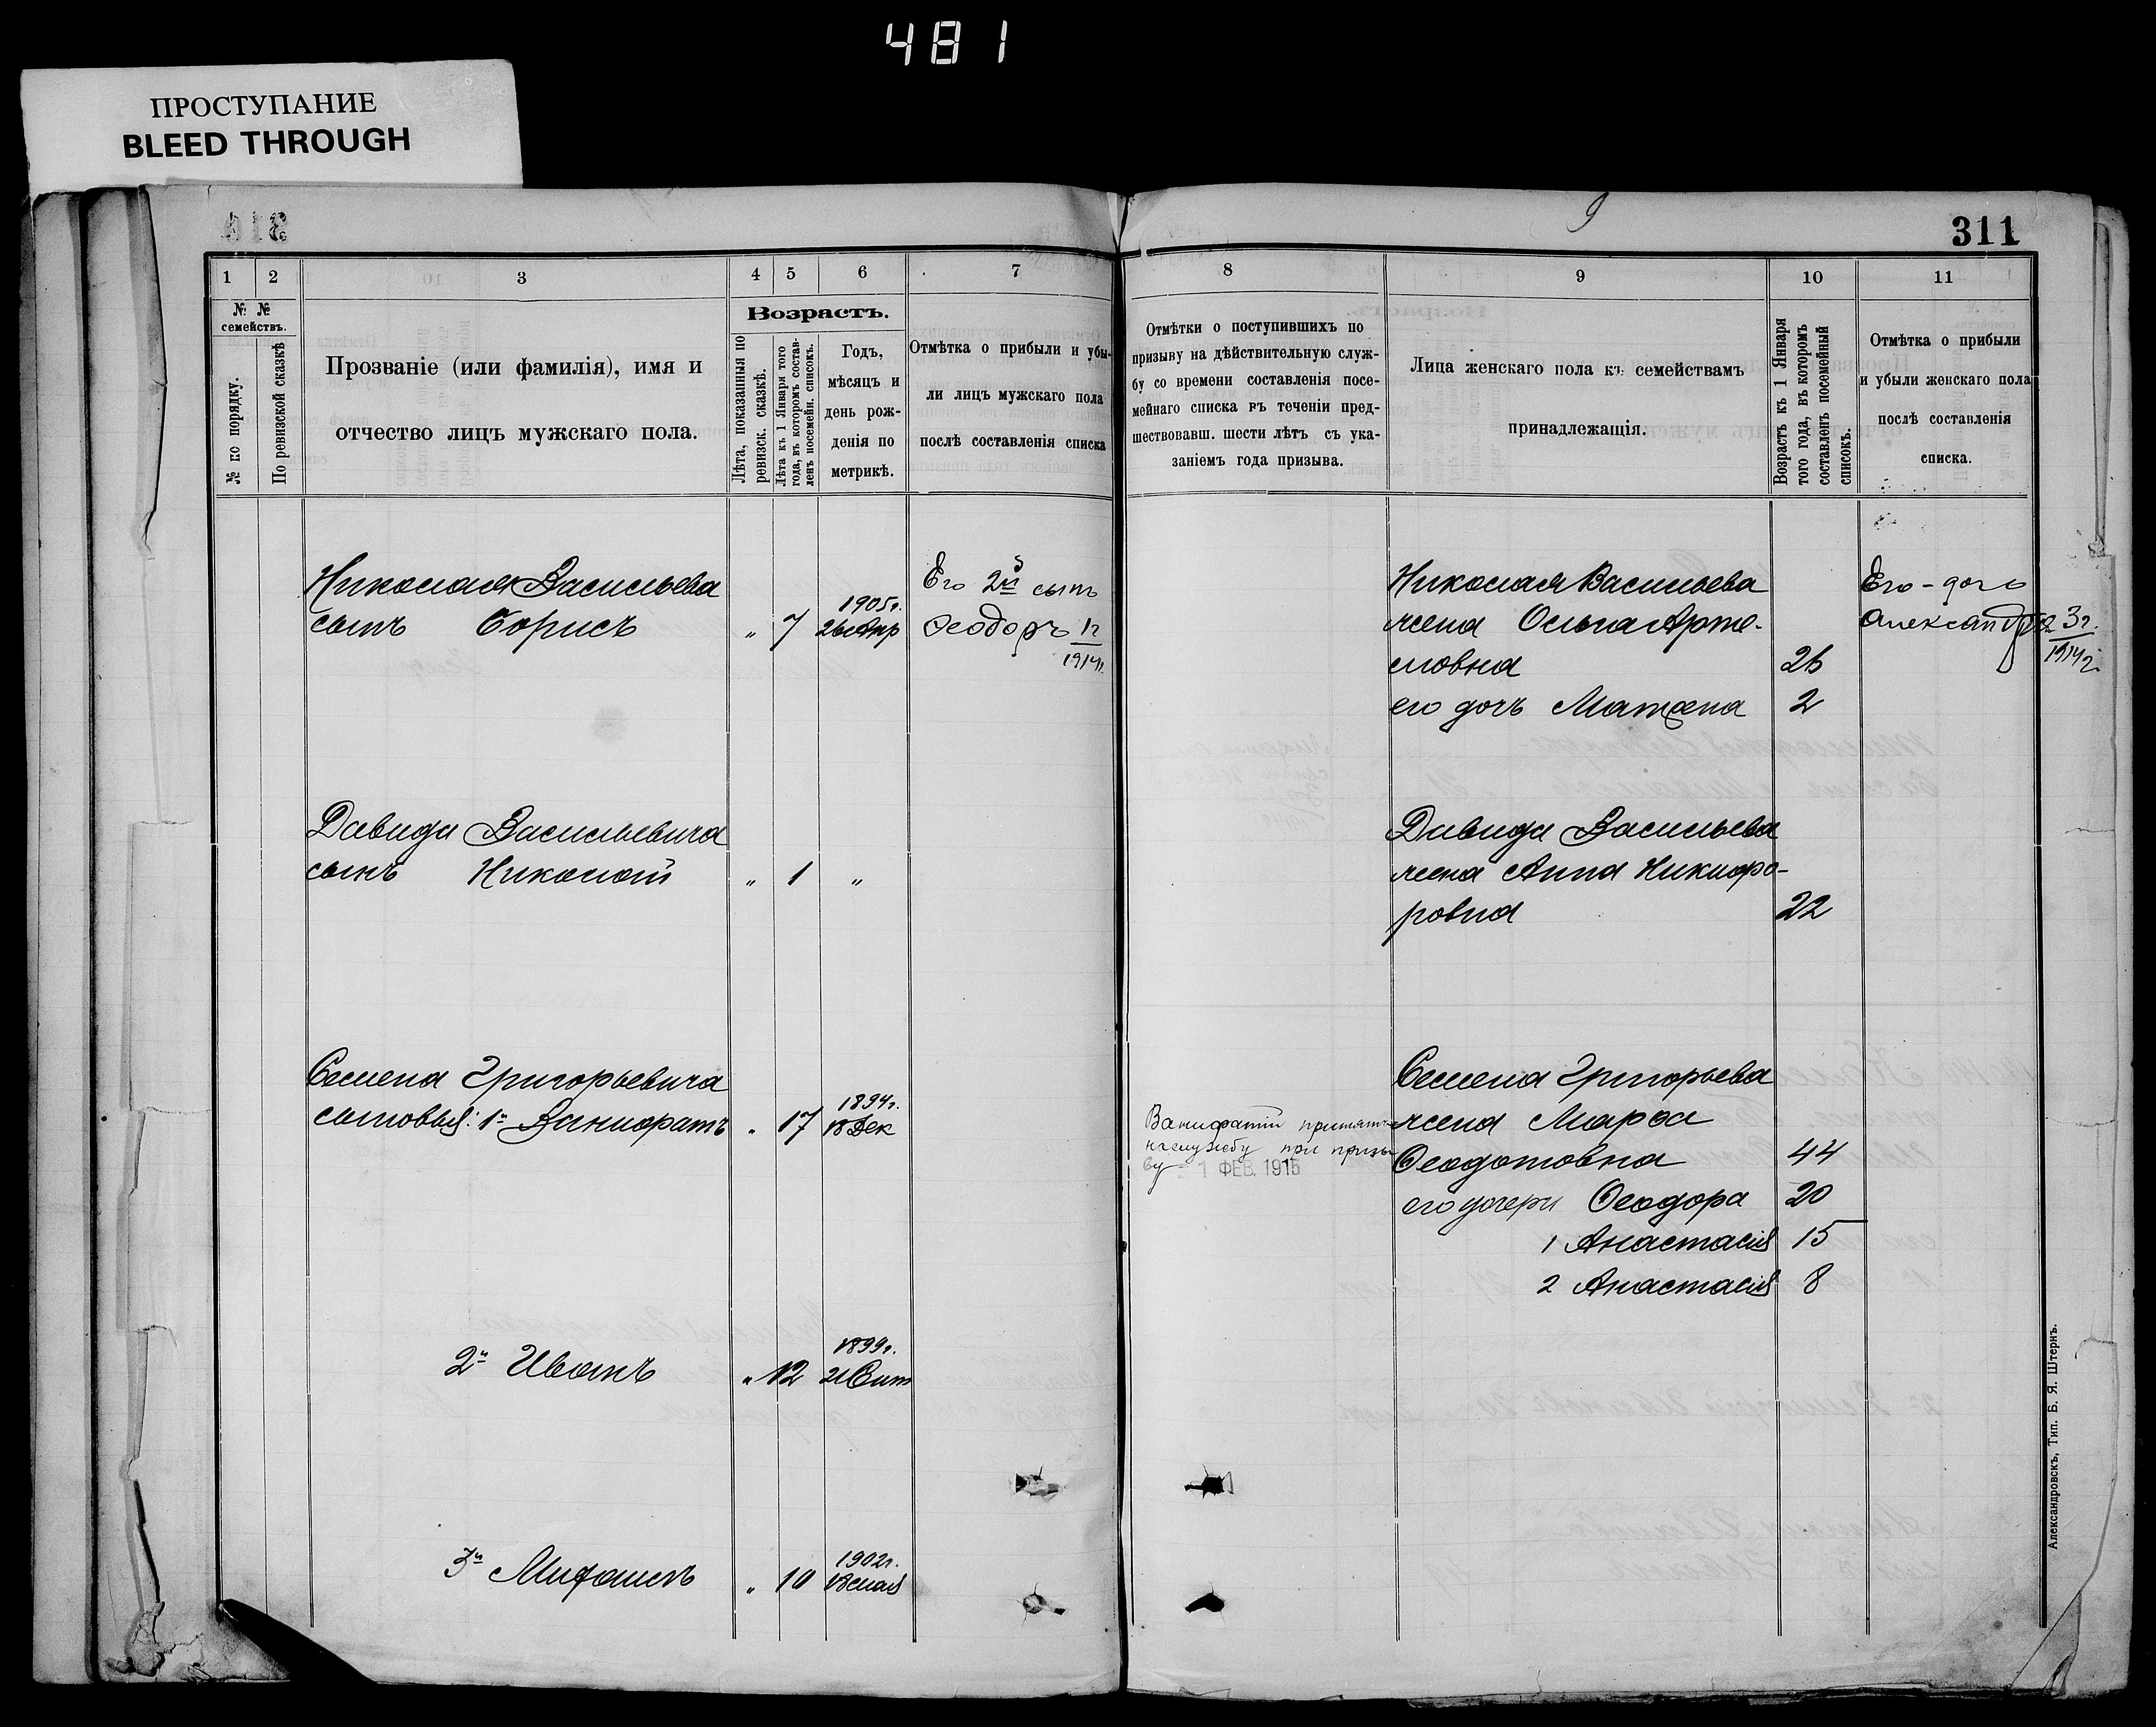 481
ПРОСТУПАНИЕ
BLEED THROUGH
9
311
1 2 3 4 5 6 7
№ № семействъ.
№ по порядку.
По ревизской сказкѣ
Прозваніе (или фамилія), имя и
отчество лицъ мужскаго пола.
Возрастъ.
Лѣта, показанныя по
ревизск. сказкѣ.
Лѣта къ 1 Января того
года, въ которомъ состав-
ленъ посемейн. списокъ.
Годъ,
мѣсяцъ и
день рож-
денія по
метрикѣ.
Отмѣтка о прибыли и убы-
ли лицъ мужскаго пола
послѣ составленія списка
8 9 10 11
Отмѣтки о поступившихъ по
призыву на дѣйствительную служ-
бу со времени составленія посе-
мейнаго списка въ теченіи пред-
шествовавш. шести лѣтъ съ ука-
заніемъ года призыва.
Лица женскаго пола къ семействамъ
принадлежащія.
Возрастъ къ 1 Января
того года, въ которомъ
составленъ посемейный
списокъ.
Отмѣтка о прибыли
и убыли женскаго пола
послѣ составленія
списка.
Николая Васильева
сынъ Борисъ " 7 1905г. 26 Апр
Его 2й сынъ
Ѳеодоръ 1г
1914г.
Давида Васильевича
сынъ Николай " 1 "
Семена Григорьевича
сыновья: 1й Вонифатъ " 17 1894г. 18 Дек
2й Иванъ " 12 1899г. 21 Сент
3й Мифодій " 10 1902г. 18 мая
Вонифатій принятъ
на службу при призы
ву 1 ФЕВ. 1915
Николая Васильева
жена Ольга Арте-
мовна 26
его дочь Матрена 2
Его - дочь
Александра 3г.
1914г.
Давида Васильева
жена Анна Никифо-
ровна 22
Семена Григорьева
жена Марѳа
Ѳеодотовна 44
его дочери Ѳеодора 20
1 Анастасія 15
2 Анастасія 8
Александровскъ, Тип. Б. Я. Штернъ.